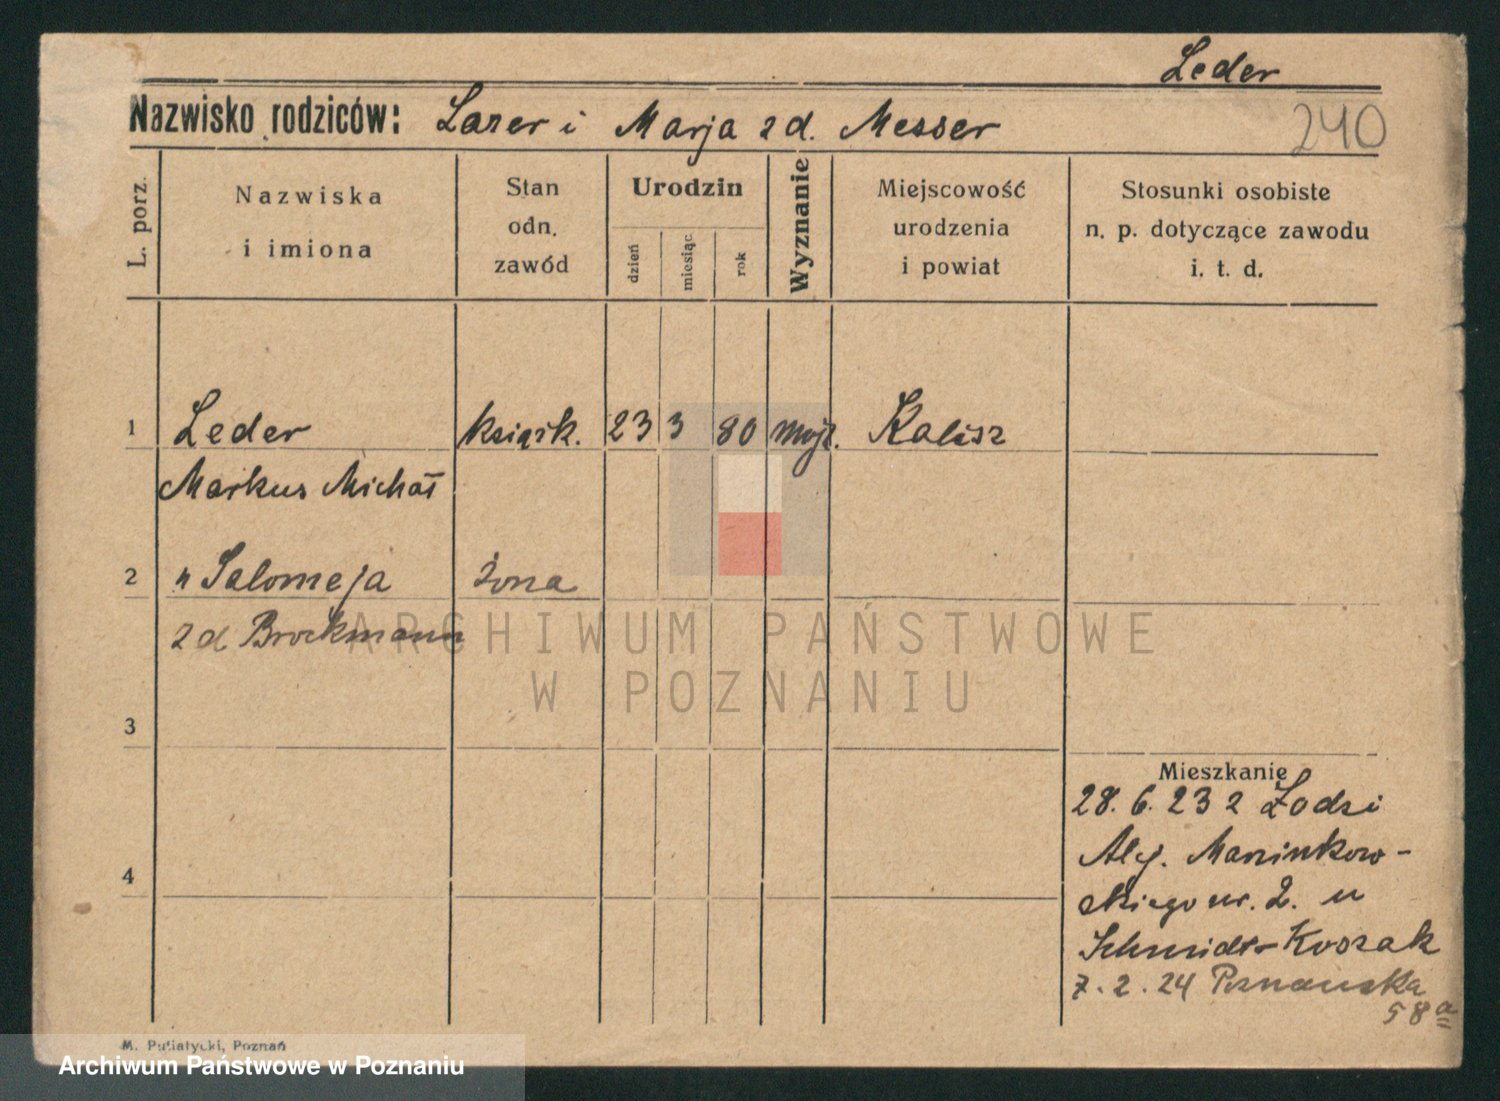 Leder
Nazwisko rodziców: Lazer i Marja z d. Messer
240
L. porz.
Nazwiska
i imiona
Stan
odn.
zawód
Urodzin
dzień
miesiąc
rok
Wyznanie
Miejscowość
urodzenia
i powiat
Stosunki osobiste
n. p. dotyczące zawodu
i. t. d.
1 Leder książk. 23 3 80 mojż. Kalisz
Markus Michał
2 " Salomeja żona
z d Brockmann
3
4
Mieszkanie
28. 6. 23 z Łodzi
Alej. Marcinkow-
skiego nr. 2. u
Schmidt-Kossak
7. 2. 24 Poznańska
58a
ARCHIWUM PAŃSTWOWE
W POZNANIU
M. Putiatycki, Poznań
Archiwum Państwowe w Poznaniu